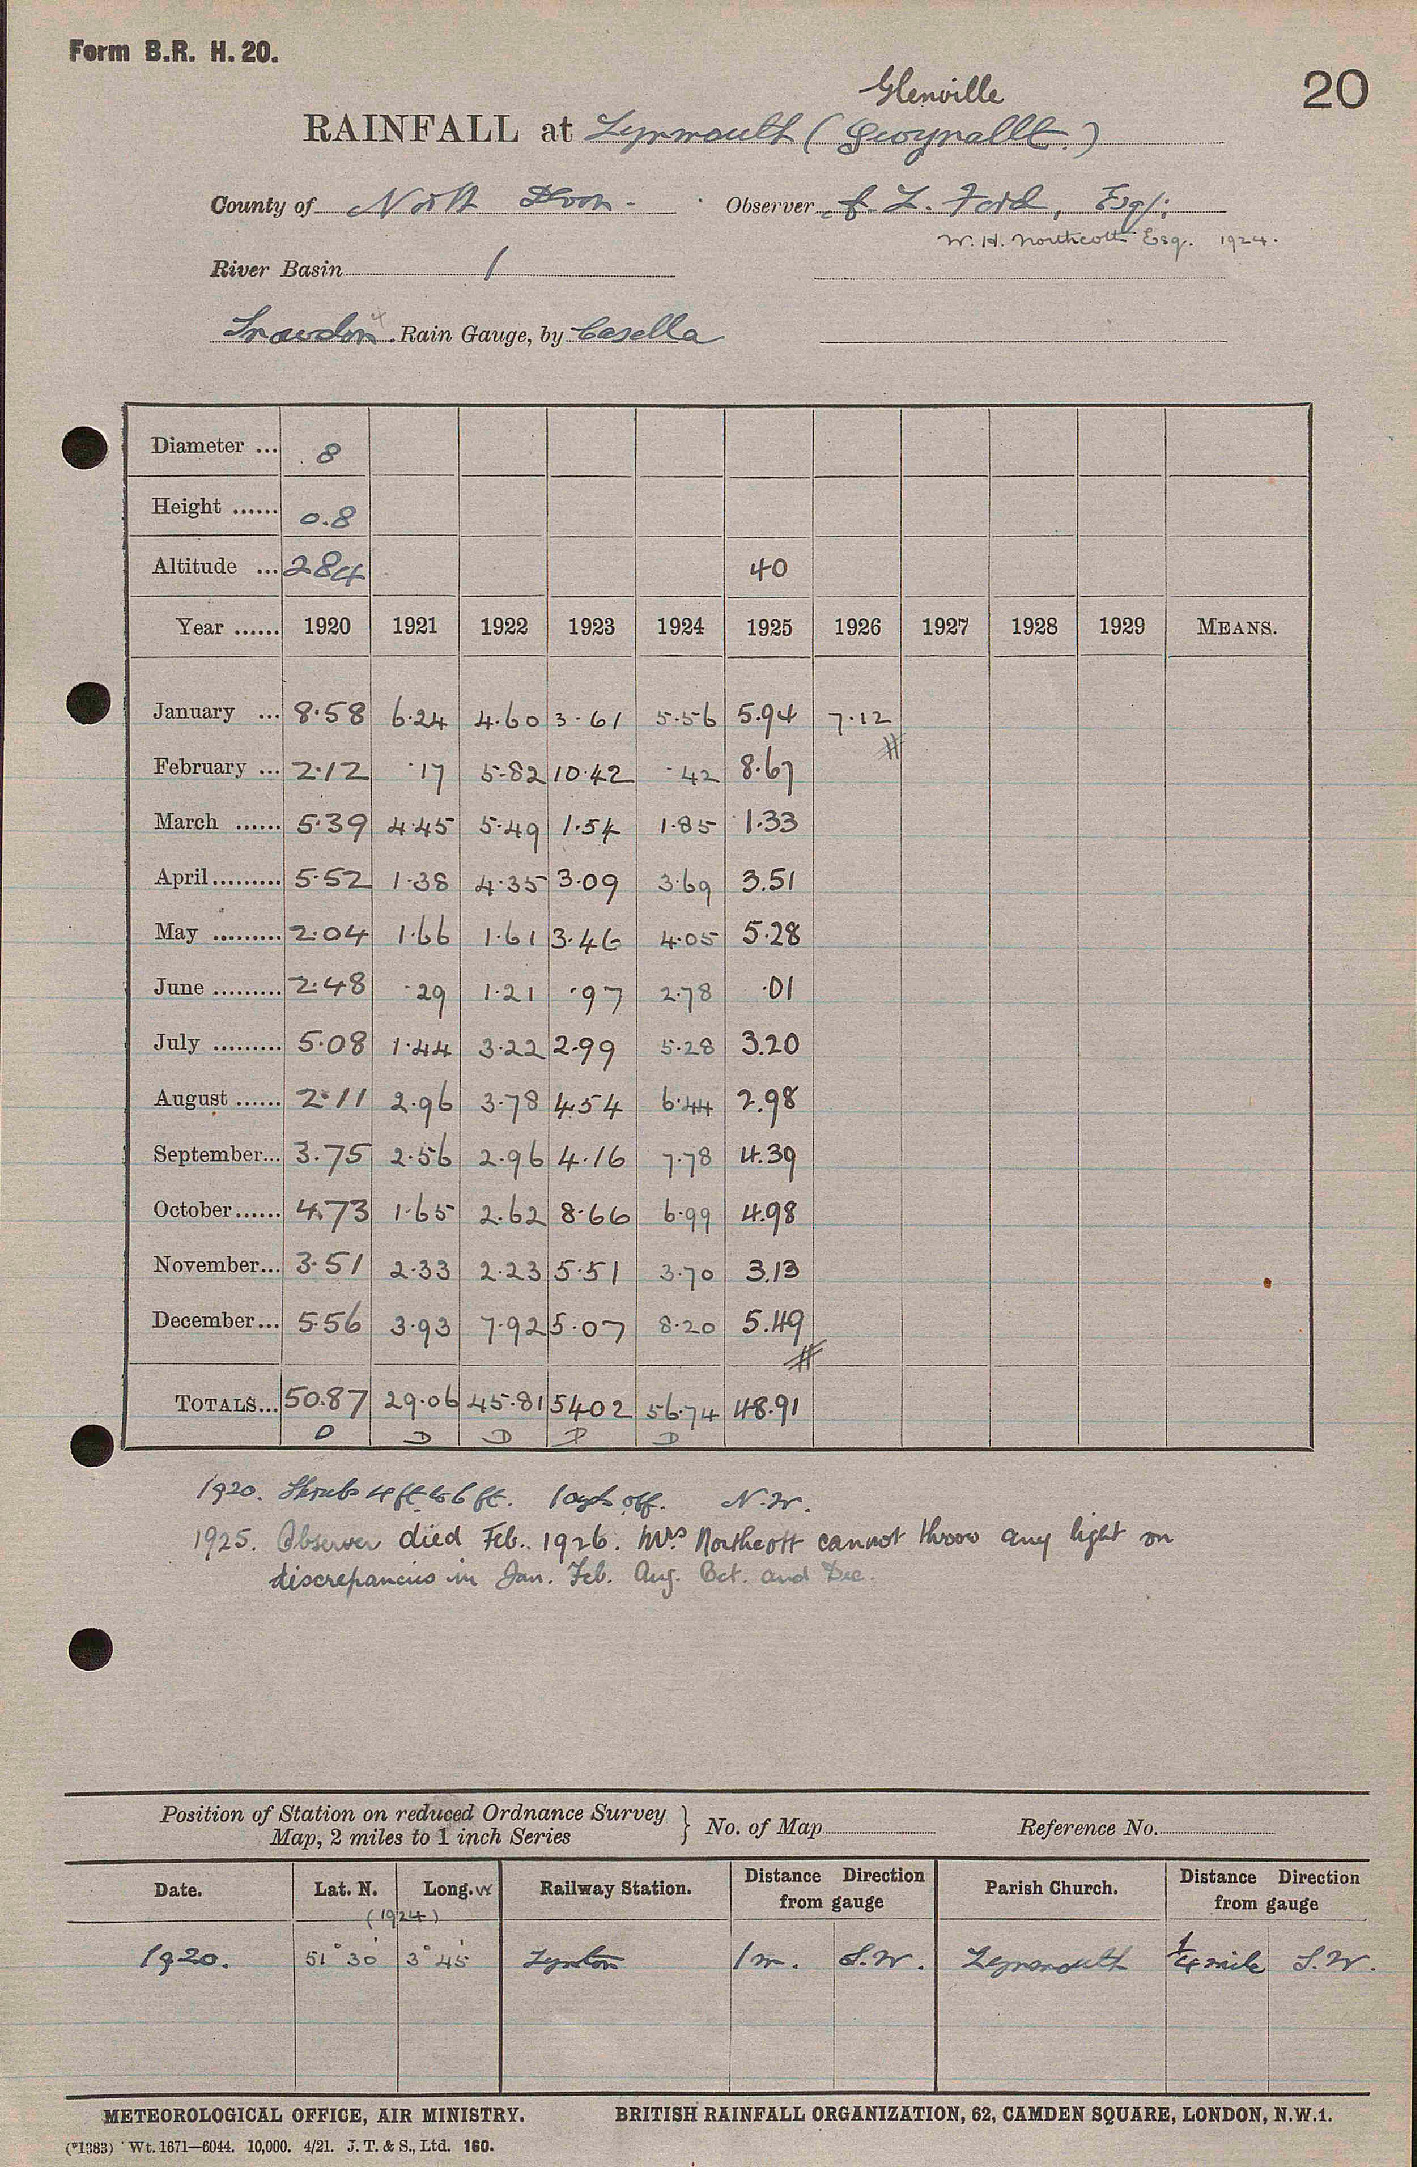 Form B.R. H. 20.
20
Glenville
RAINFALL at Lynmouth (Gwynallt.)
County of North Devon - Observer L. Ford, Esq;
W. H. Northcott Esq. 1924.
River Basin 1
Snowdon Rain Gauge, by Casella
Diameter ... 8
Height ...... 0.8
Altitude ... 284 40
Year ...... 1920 1921 1922 1923 1924 1925 1926 1927 1928 1929 MEANS.
January ... 8.58 6.24 4.60 3.61 5.56 5.94 7.12
February ... 2.12 .17 5.82 10.42 .42 8.67
March ...... 5.39 4.45 5.49 1.54 1.85 1.33
April ......... 5.52 1.38 4.35 3.09 3.69 3.51
May ......... 2.04 1.66 1.61 3.46 4.05 5.28
June ......... 2.48 .29 1.21 .97 2.78 .01
July ......... 5.08 1.44 3.22 2.99 5.28 3.20
August ...... 2.11 2.96 3.78 4.54 6.44 2.98
September... 3.75 2.56 2.96 4.16 7.78 4.39
October...... 4.73 1.65 2.62 8.66 6.99 4.98
November... 3.51 2.33 2.23 5.51 3.70 3.13
December... 5.56 3.93 7.92 5.07 8.20 5.49
TOTALS... 50.87 29.06 45.81 5402 56.74 48.91
D D D D D
1920. Shrubs 4 ft to 6 ft. 10 yds off. N.W.
1925. Observer died Feb. 1926. Mrs Northcott cannot throw any light on
discrepancies in Jan. Feb. Aug. Oct. and Dec.
Position of Station on reduced Ordnance Survey
Map, 2 miles to 1 inch Series } No. of Map Reference No.
Date. Lat. N. Long. W Railway Station. Distance Direction from gauge Parish Church. Distance Direction from gauge
(1924)
1920. 51° 30' 3° 45' Lynton 1 m. S.W. Lynmouth 1/4 mile S.W.
METEOROLOGICAL OFFICE, AIR MINISTRY. BRITISH RAINFALL ORGANIZATION, 62, CAMDEN SQUARE, LONDON, N.W.1.
(*1383) Wt. 1671—6044. 10,000. 4/21. J. T. & S., Ltd. 160.